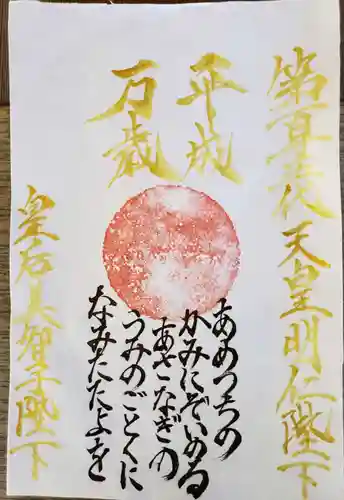 第百二十五代 天皇明仁陛下
平成
万歳
あめつちの
かみにぞいのる
あさなぎの
うみのごとくに
なみたたぬよを
皇后美智子陛下